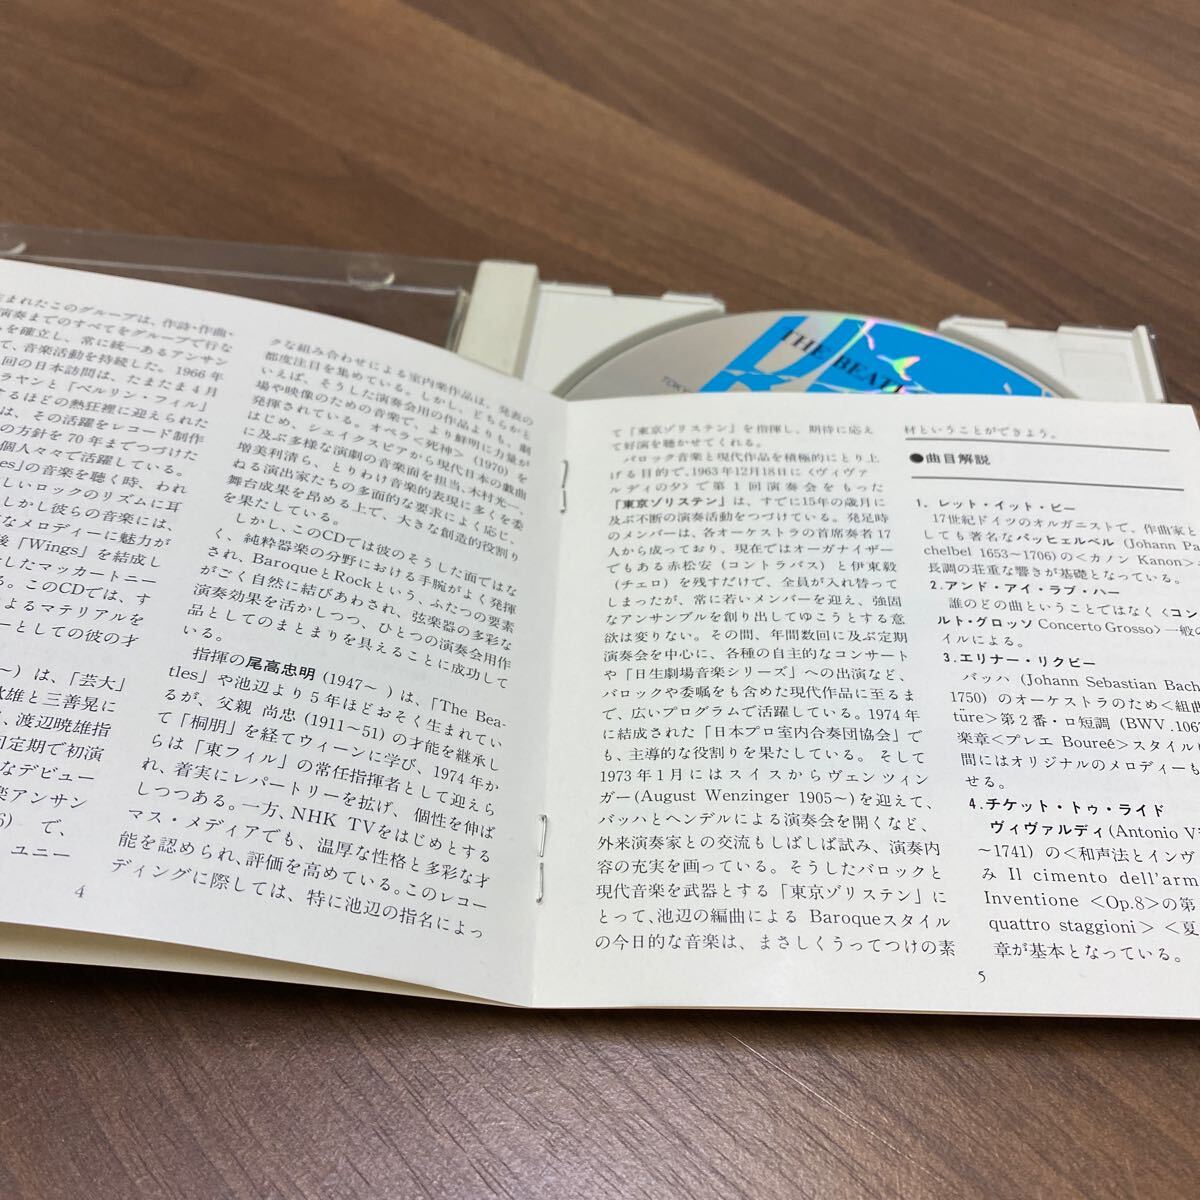 THE BEATL
TOKY
まれたこのグループは、作詩・作曲・
演奏までのすべてをグループで行な
を確立し、常に統一あるアンサン
て、音楽活動を持続した。1966年
回の日本訪問は、たまたま4月
ラヤンと「ベルリン・フィル」
るほどの熱狂裡に迎えられた
は、その活躍をレコード制作
の方針を70年までつづけた
個人々々で活躍している。
es」の音楽を聴く時、われ
しいロックのリズムに耳
しかし彼らの音楽には、
なメロディーに魅力が
後「Wings」を結成し
したマッカートニー
る。このCDでは、す
よるマテリアルを
ーとしての彼の才
〜）は、「芸大」
雄と三善晃に
、渡辺暁雄指
回定期で初演
なデビュー
楽アンサン
6) で、
ユニー
4
クな組み合わせによる室内楽作品は、発表の
都度注目を集めている。しかし、どちらかと
いえば、そうした演奏会用の作品よりも、劇
場や映像のための音楽で、より鮮明に力量が
発揮されている。オペラ＜死神＞（1970）を
はじめ、シェイクスピアから現代日本の戯曲
に及ぶ多様な演劇の音楽面を担当、木村光一、
増美利清ら、とりわけ音楽的表現に多くを委
ねる演出家たちの多面的な要求によく応じ、
舞台成果を昂める上で、大きな創造的役割り
を果たしている。
しかし、このCDでは彼のそうした面ではな
く、純粋器楽の分野における手腕がよく発揮
され、BaroqueとRockという、ふたつの要素
がごく自然に結びあわされ、弦楽器の多彩な
演奏効果を活かしつつ、ひとつの演奏会用作
品としてのまとまりを具えることに成功して
いる。
指揮の尾高忠明（1947〜 ）は、「The Bea-
tles」や池辺より5年ほどおそく生まれてい
るが、父親 尚忠（1911〜51）の才能を継承し
て「桐朋」を経てウィーンに学び、1974年か
らは「東フィル」の常任指揮者として迎えら
れ、着実にレパートリーを拡げ、個性を伸ば
しつつある。一方、NHK TVをはじめとする
マス・メディアでも、温厚な性格と多彩な才
能を認められ、評価を高めている。このレコー
ディングに際しては、特に池辺の指名によっ
て「東京ゾリステン」を指揮し、期待に応え
て好演を聴かせてくれる。
バロック音楽と現代作品を積極的にとり上
げる目的で、1963年12月18日に＜ヴィヴァ
ルディの夕＞で第1回演奏会をもった
「東京ゾリステン」は、すでに15年の歳月に
及ぶ不断の演奏活動をつづけている。発足時
のメンバーは、各オーケストラの首席奏者17
人から成っており、現在ではオーガナイザー
でもある赤松安（コントラバス）と伊東毅
（チェロ）を残すだけで、全員が入れ替って
しまったが、常に若いメンバーを迎え、強固
なアンサンブルを創り出してゆこうとする意
欲は変りない。その間、年間数回に及ぶ定期
演奏会を中心に、各種の自主的なコンサート
や「日生劇場音楽シリーズ」への出演など、
バロックや委嘱をも含めた現代作品に至るま
で、広いプログラムで活躍している。1974年
に結成された「日本プロ室内合奏団協会」で
も、主導的な役割りを果たしている。そして
1973年1月にはスイスからヴェンツィン
ガー(August Wenzinger 1905〜)を迎えて、
バッハとヘンデルによる演奏会を開くなど、
外来演奏家との交流もしばしば試み、演奏内
容の充実を画っている。そうしたバロックと
現代音楽を武器とする「東京ゾリステン」に
とって、池辺の編曲による Baroqueスタイル
の今日的な音楽は、まさしくうってつけの素
5
材ということができよう。
●曲目解説
1. レット・イット・ビー
17世紀ドイツのオルガニストで、作曲家と
しても著名なパッヒェルベル (Johann Pa
chelbel 1653〜1706)の＜カノン Kanon＞
長調の荘重な響きが基礎となっている。
2. アンド・アイ・ラブ・ハー
誰のどの曲ということではなく＜コン
ルト・グロッソ Concerto Grosso＞一般の
イルによる。
3. エリナー・リクビー
バッハ (Johann Sebastian Bach
1750) のオーケストラのため＜組曲
türe＞第2番・ロ短調 (BWV .106
楽章＜プレエ Boureé＞スタイル
間にはオリジナルのメロディーも
せる。
4. チケット・トゥ・ライド
ヴィヴァルディ(Antonio V
〜1741) の＜和声法とインヴ
み Il cimento dell'arm
Inventione ＜Op.8＞の第
quattro staggioni＞＜夏
章が基本となっている。